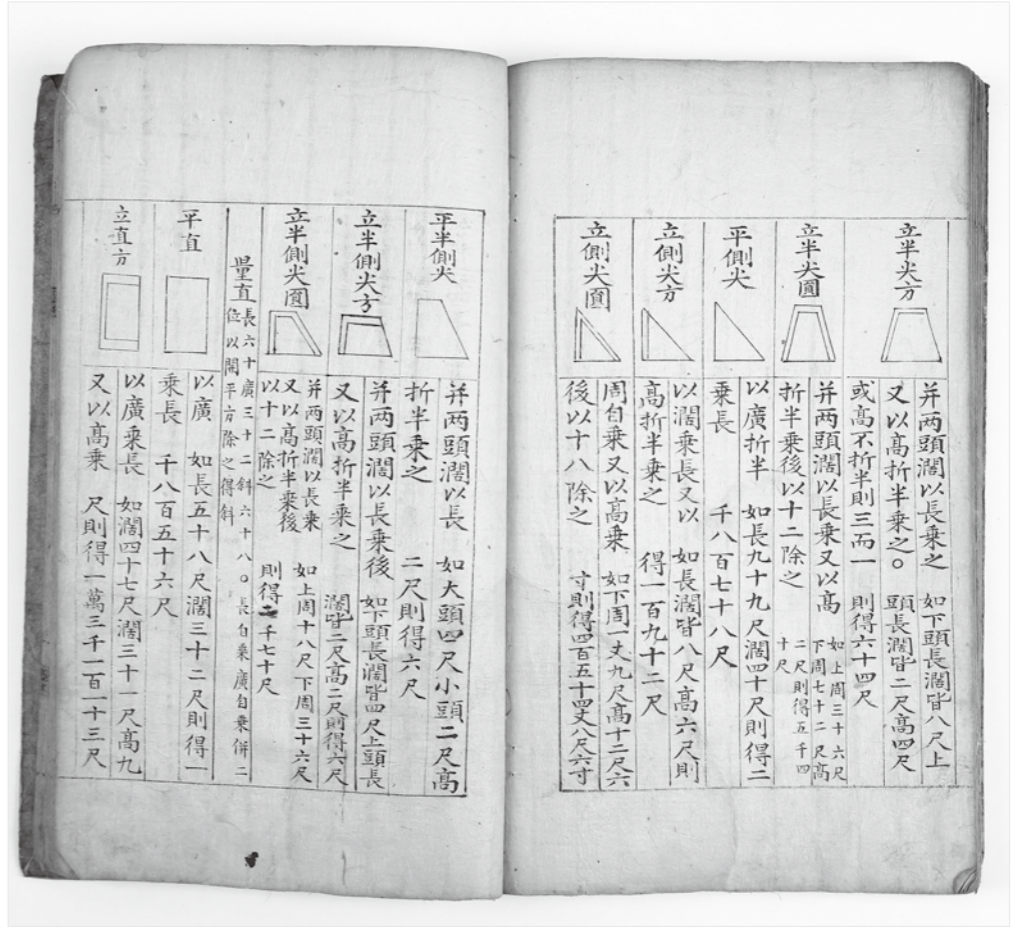 立半尖方
并两頭濶以長乘之　如下頭長濶皆八尺上
又以高折半乘之○　頭長濶皆二尺高四尺
或高不折半則三而一　則得六十四尺
立半尖圓
并两頭濶以長乘又以高
折半乘後以十二除之
如上周三十六尺
下周七十二尺高
二尺則得五千四
十尺
平側尖
以廣折半　如長九十九尺濶四十尺則得二
乘長　千八百七十八尺
立側尖方
以濶乘長又以　如長濶皆八尺高六尺則
高折半乘之　得一百九十二尺
立側尖圓
周自乘又以高乘　如下周一丈九尺高十二尺六
後以十八除之　寸則得四百五十四丈八尺六寸
平半側尖
并两頭濶以長　如大頭四尺小頭二尺高
折半乘之　二尺則得六尺
立半側尖方
并两頭濶以長乘後　如下頭長濶皆四尺上頭長
又以高折半乘之　濶皆二尺高二尺則得六尺
立半側尖圓
并两頭濶以長乘
又以高折半乘後
以十二除之
如上周十八尺下周三十六尺
則得千七十尺
量直
長六十廣三十二斜六十八○長自乘廣自乘併二
位以開平方除之得斜
平直
以廣　如長五十八尺濶三十二尺則得一
乘長　千八百五十六尺
立直方
以廣乘長　如濶四十七尺濶三十一尺高九
又以高乘　尺則得一萬三千一百一十三尺